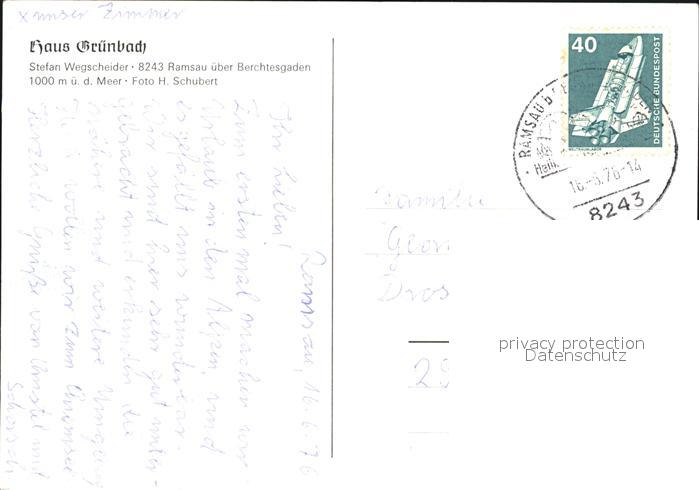 x unser Zimmer
Haus Grünbach
Stefan Wegscheider · 8243 Ramsau über Berchtesgaden
1000 m ü. d. Meer · Foto H. Schubert
40
DEUTSCHE BUNDESPOST
WELTRAUMLABOR
RAMSAU b BE
16.-6.76-14
8243
Ramsau, 16.6.76
Ihr Lieben!
Zum ersten mal machen wir
Urlaub in den Alpen, und
es gefällt uns wunderbar.
Wir sind hier sehr gut unter-
gebracht und erkunden die
nähere und weitere Umgebung
wollen wir zum Chiemsee
Herzliche Grüße von Christel und
Schorsch
Familie
Geor
Dros
privacy protection
Datenschutz